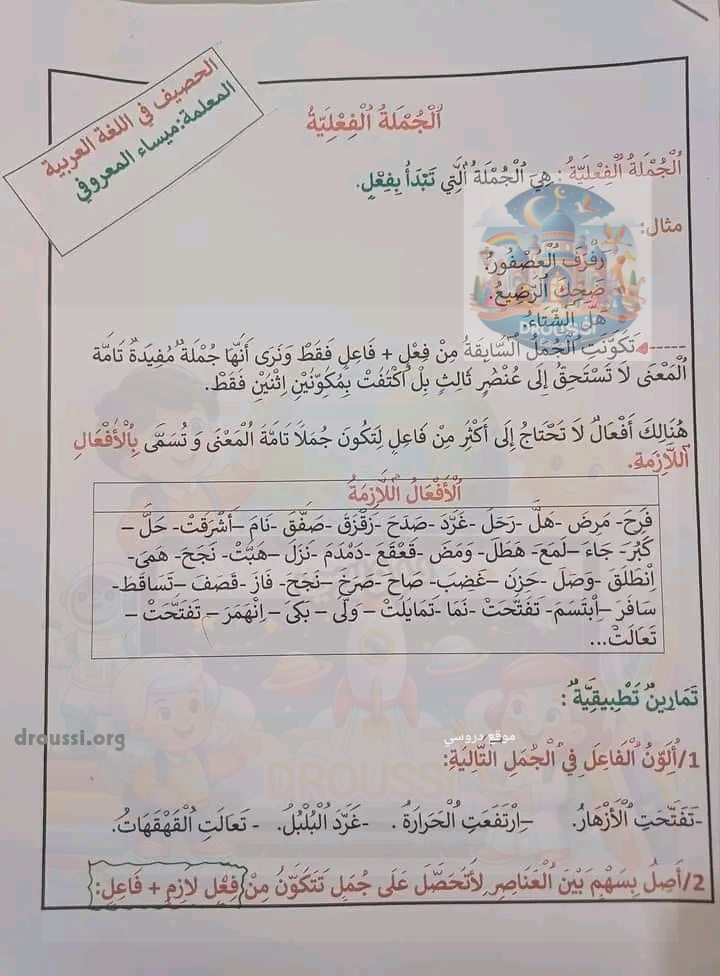 الحصيف في اللغة العربية
المعلمة:ميساء المعروفي
اَلْجُمْلَةُ الْفِعْلِيَّةُ
اَلْجُمْلَةُ الْفِعْلِيَّةُ : هِيَ الْجُمْلَةُ الَّتِي تَبْدَأُ بِفِعْلٍ.
مثال:
رَفْرَفَ الْعُصْفُورُ.
ضَحِكَ الرَّضِيعُ.
هَلَّ الشِّتَاءُ
DROUSSI
تَكَوَّنَتِ الْجُمَلُ السَّابِقَةُ مِنْ فِعْلٍ + فَاعِلٍ فَقَطْ وَنَرَى أَنَّهَا جُمْلَةٌ مُفِيدَةٌ تَامَّة
الْمَعْنَى لَا تَسْتَحِقُّ إِلَى عُنْصُرٍ ثَالِثٍ بِلْ اُكْتَفَتْ بِمُكَوِّنَيْنِ اِثْنَيْنِ فَقَطْ.
هُنَالِكَ أَفْعَالٌ لَا تَحْتَاجُ إِلَى أَكْثَرِ مِنْ فَاعِلٍ لِتَكُونَ جُمَلًا تَامَةَ الْمَعْنَى وَ تُسَمَّى بِالْأَفْعَالِ
اللَّازِمَةِ.
اَلْأَفْعَالُ اللَّازِمَةُ
فَرِحَ- مَرِضَ -هَلَّ -رَحَلَ -غَرَّدَ -صَدَحَ -زَقْزَقَ -صَفَّقَ -نَامَ –أَشْرَقَتْ- حَلَّ –
كَبُرَ- جَاءَ –لَمَعَ- هَطَلَ- وَمَضَ -قَعْقَعَ -دَمْدَمَ -نَزَلَ –هَبَّتْ- نَجَحَ- هَمَى-
اِنْطَلَقَ -وَصَلَ- حَزِنَ –غَضِبَ- صَاحَ -صَرَخَ –نَجَحَ- فَازَ- قَصَفَ –تَسَاقَطَ-
سَافَرَ –اِبْتَسَمَ- تَفَتَّحَتْ -نَمَا -تَمَايَلَتْ – وَلَّى – بَكَى – اِنْهَمَرَ – تَفَتَّحَتْ –
تَعَالَتْ...
تَمَارِينٌ تَطْبِيقِيَّةٌ :
droussi.org
موقع دروسي
1/أُلَوِّنُ الْفَاعِلَ فِي الْجُمَلِ التَّالِيَةِ:
-تَفَتَّحَتِ الْأَزْهَارُ. –اِرْتَفَعَتِ الْحَرَارَةُ . -غَرَّدَ الْبُلْبُلُ. - تَعَالَتِ الْقَهْقَهَاتُ.
DROUSSI
2/أَصِلُ بِسَهْمٍ بَيْنَ الْعَنَاصِرِ لِأَتَحَصَّلَ عَلَى جُمَلٍ تَتَكَوَّنُ مِنْ فِعْلٍ لَازِمٍ + فَاعِلٍ: